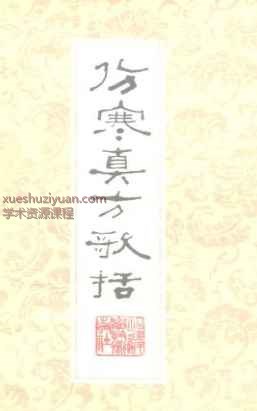 伤寒真方歌括
xueshuziyuan.com
学术资源课程